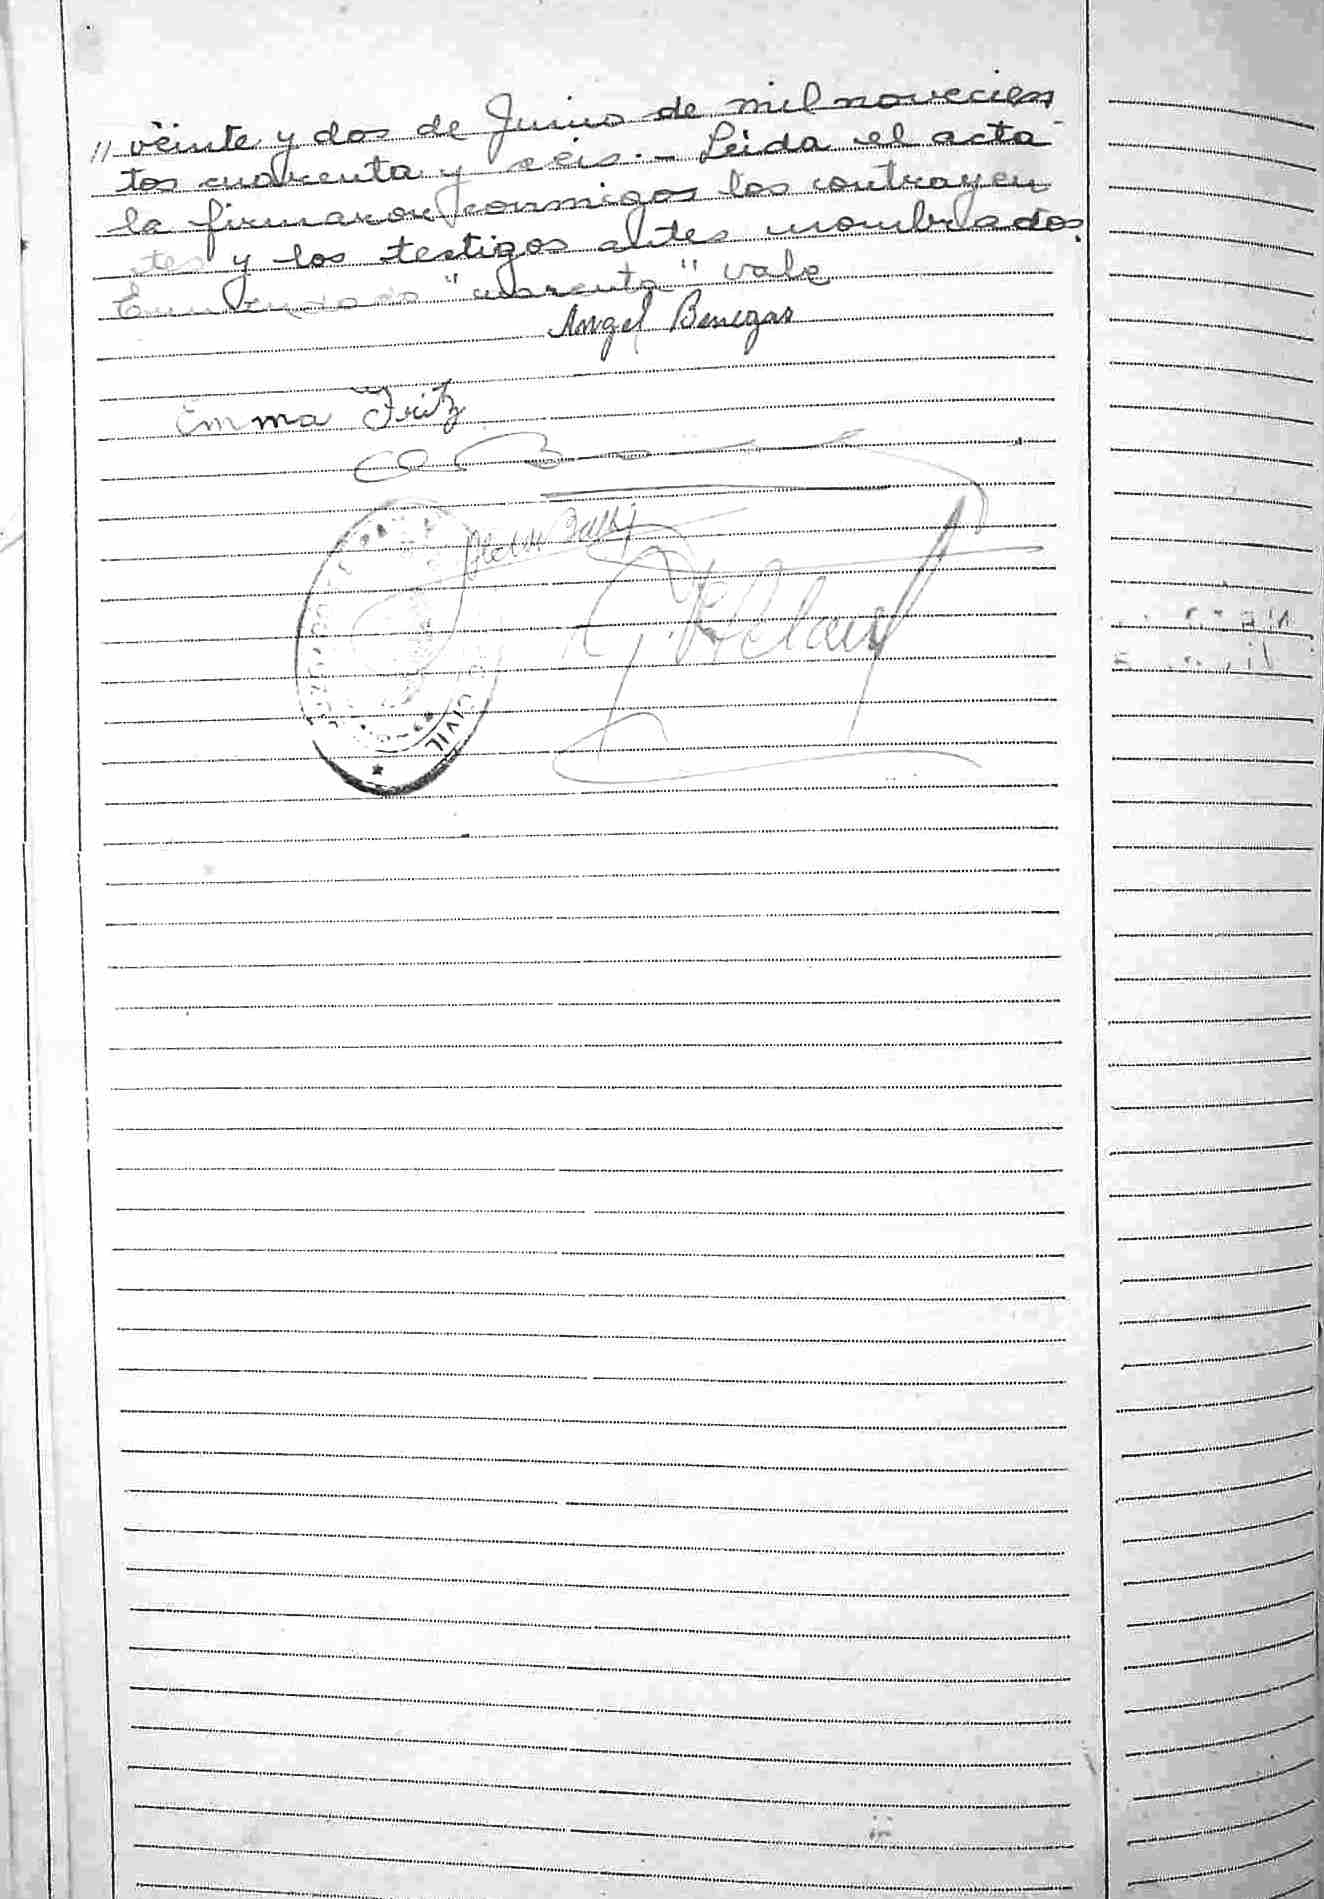 " veinte y dos de Junio de mil novecien
tos cuarenta y seis.- Leida el acta
la firmaron conmigos los contrayen
tes y los testigos antes nombrados.
Enmendado "cuarenta" vale
Angel Benegas
Emma Fritz
CIVIL